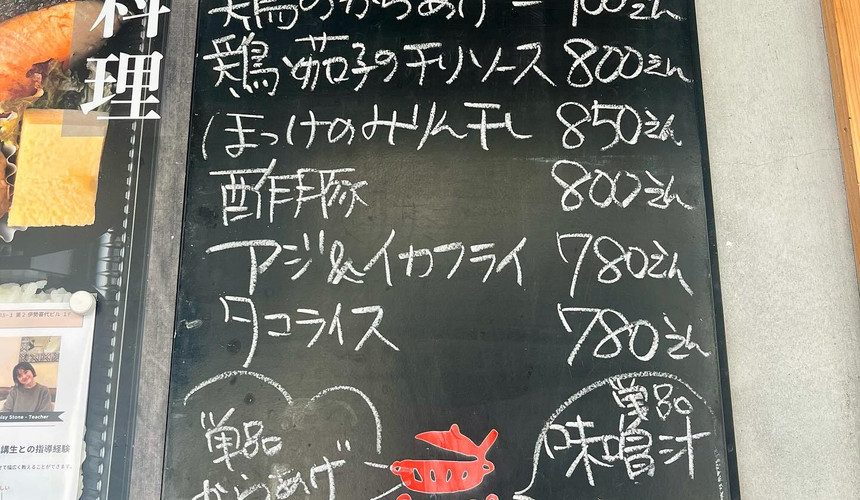 料理
鶏のからあげ
鶏、茄子のチリソース 800えん
ほっけのみりん干し 850えん
酢豚 800えん
アジ&イカフライ 780えん
タコライス 780えん
単品
からあげ
単品
味噌汁
第2伊勢幕代ビル 1F
sy Stone - Teacher
講生との指導経験